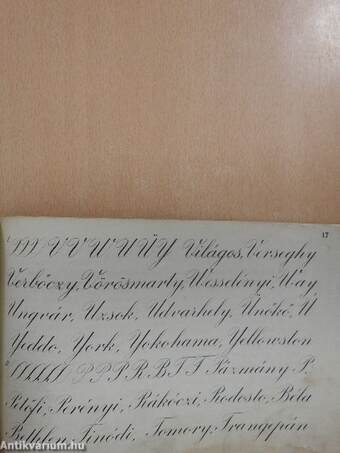 17
V V U U Ü Y Világos, Verseghy
Verbőczy, Vörösmarty, Wesselényi, Way
Ungvár, Uzsok, Udvarhely, Ünőkő, Ü
Yeddo, York, Yokohama, Yellowston
P P P R B T F Pázmány P.
Petőfi, Perényi, Rákóczi, Rodosto, Béla
Bethlen, Tinódi, Tomory, Frangepán
Antikvarium.hu
Antikvarium.hu